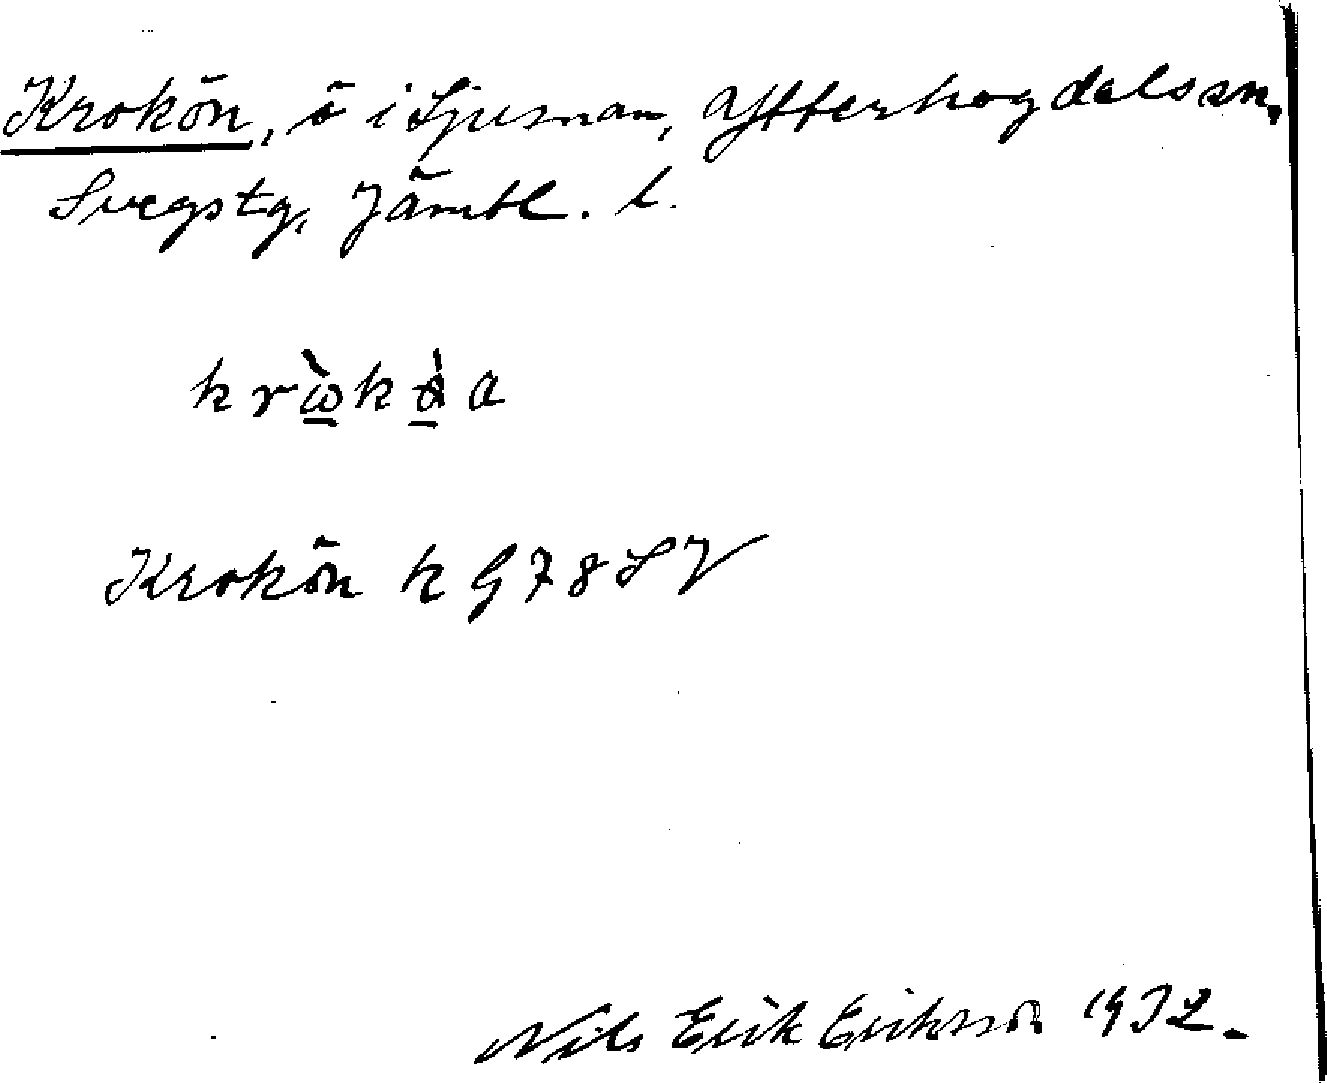 Krokön, ö i Ljusnan, Ytterhogdals sn.
Svegs tg, Jämtl. l.
krὼ̲kø̲̀a
Krokön k G 78 SV
Nils Erik Eriksson 1932.